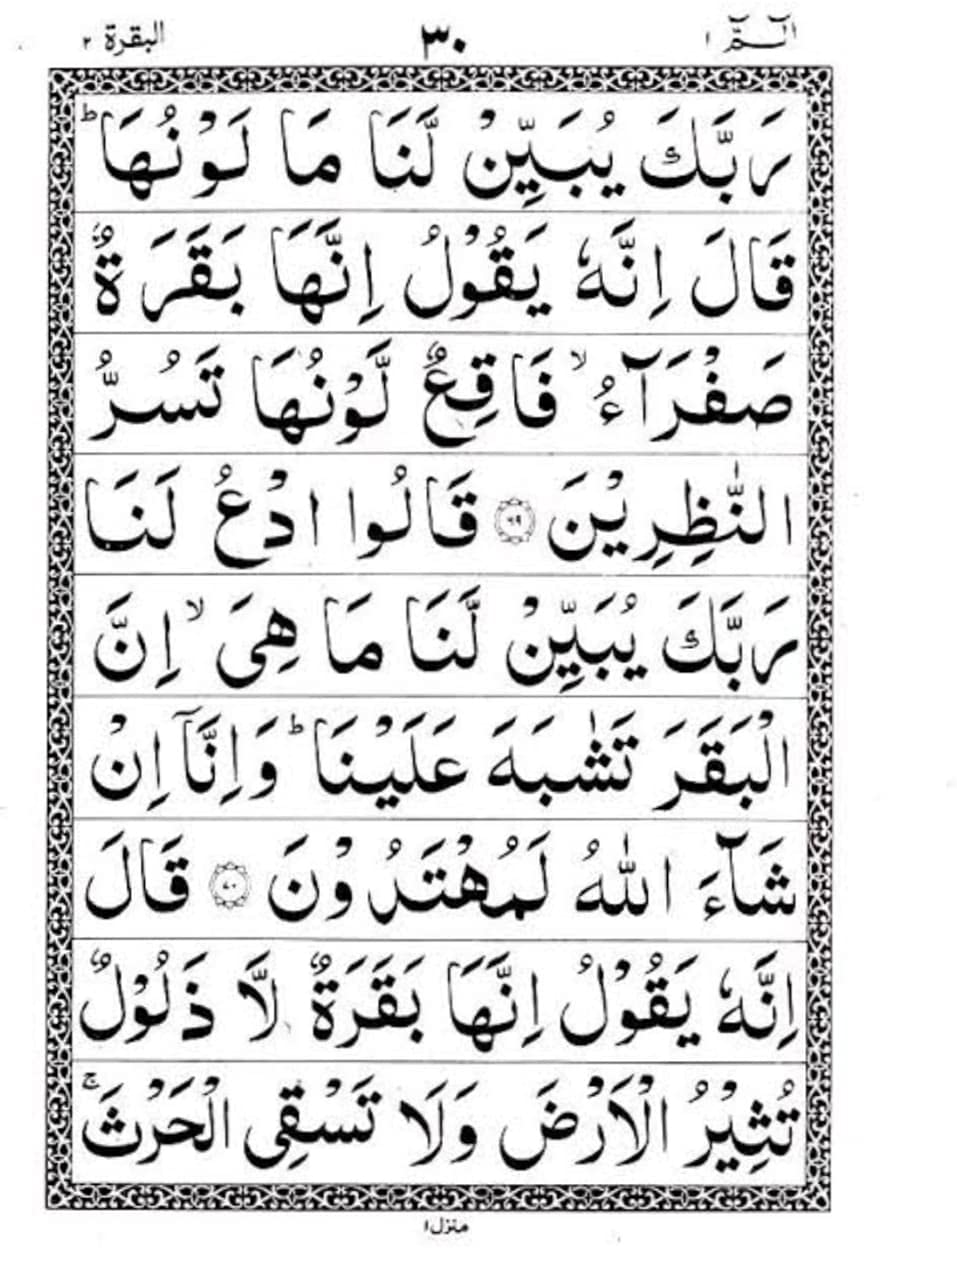 الٓـمّٓ ۱ ۳۰ البقرة ۲
رَبَّكَ يُبَيِّنْ لَّنَا مَا لَوْنُهَا ؕ
قَالَ اِنَّهٗ يَقُوْلُ اِنَّهَا بَقَرَةٌ
صَفْرَآءُ ۙ فَاقِعٌ لَّوْنُهَا تَسُرُّ
النّٰظِرِيْنَ ۶۹ قَالُوا ادْعُ لَنَا
رَبَّكَ يُبَيِّنْ لَّنَا مَا هِىَ ۙ اِنَّ
الْبَقَرَ تَشٰبَهَ عَلَيْنَا ؕ وَاِنَّآ اِنْ
شَآءَ اللّٰهُ لَمُهْتَدُوْنَ ۷۰ قَالَ
اِنَّهٗ يَقُوْلُ اِنَّهَا بَقَرَةٌ لَّا ذَلُوْلٌ
تُثِيْرُ الْاَرْضَ وَلَا تَسْقِى الْحَرْثَ ۚ
منزل ۱